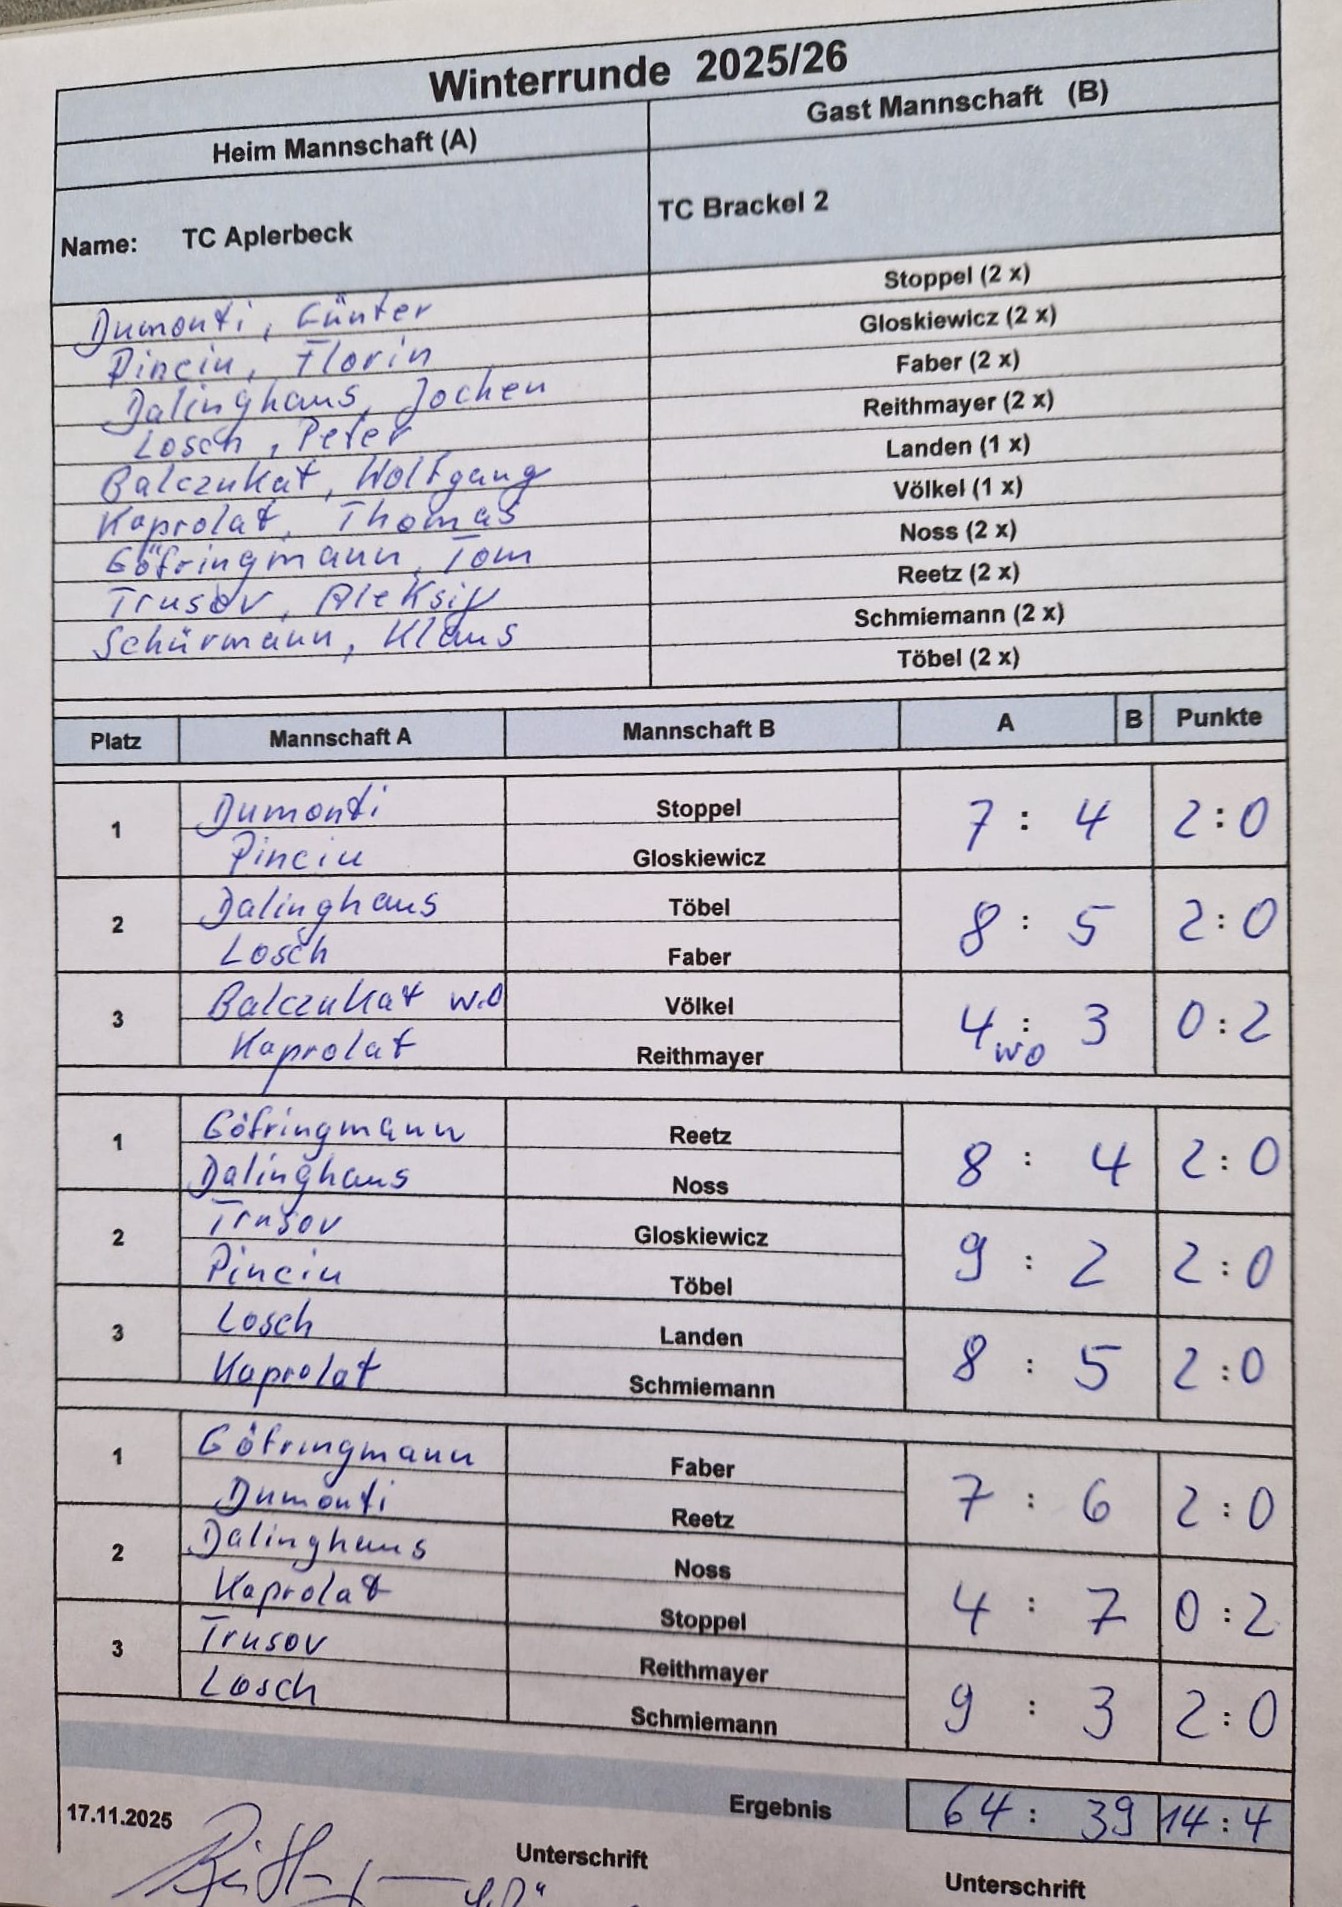 Winterrunde 2025/26
Heim Mannschaft (A) Gast Mannschaft (B)
Name: TC Aplerbeck TC Brackel 2
Dumonti, Günter Stoppel (2 x)
Pinciu, Florin Gloskiewicz (2 x)
Dalinghaus, Jochen Faber (2 x)
Losch, Peter Reithmayer (2 x)
Balczukat, Wolfgang Landen (1 x)
Kaprolat, Thomas Völkel (1 x)
Göfringmann, Tom Noss (2 x)
Trusov, Aleksij Reetz (2 x)
Schürmann, Klaus Schmiemann (2 x)
Töbel (2 x)
Platz Mannschaft A Mannschaft B A B Punkte
1 Dumonti Stoppel 7 : 4 2:0
Pinciu Gloskiewicz
2 Dalinghaus Töbel 8 : 5 2:0
Losch Faber
3 Balczukat w.o Völkel 4 : 3 0:2
Kaprolat Reithmayer wo
1 Göfringmann Reetz 8 : 4 2:0
Dalinghaus Noss
2 Trusov Gloskiewicz 9 : 2 2:0
Pinciu Töbel
3 Losch Landen 8 : 5 2:0
Kaprolat Schmiemann
1 Göfringmann Faber 7 : 6 2:0
Dumonti Reetz
2 Dalinghaus Noss 4 : 7 0:2
Kaprolat Stoppel
3 Trusov Reithmayer 9 : 3 2:0
Losch Schmiemann
Ergebnis 64 : 39 14:4
17.11.2025
Unterschrift Unterschrift